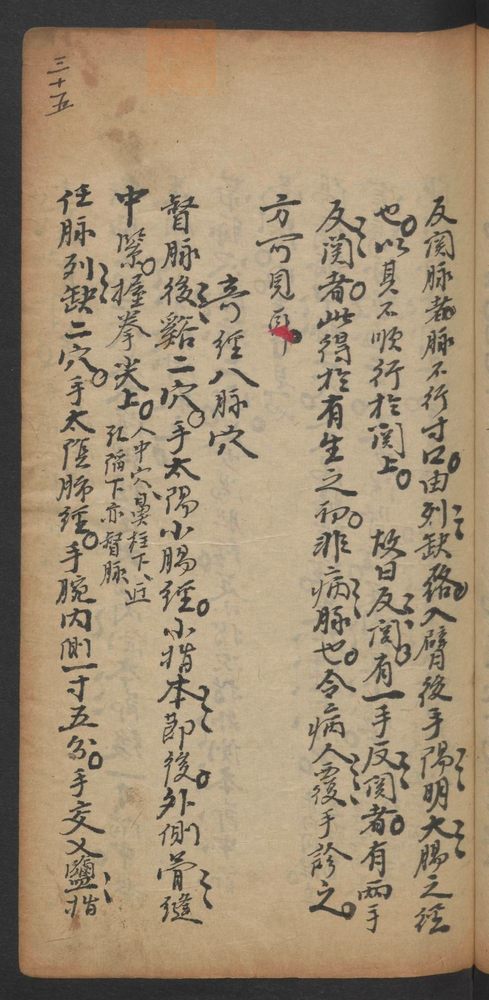 三十五
反関脉者脉不行寸口由列缺絡入臂後手陽明大腸之経
也以其不順行於関上故曰反関有一手反関者有兩手
反関者此得於有生之初非病脉也令病人覆手診之
方可見耳
奇經八脉穴
督脉後谿二穴手太陽小腸経小指本節後外側骨縫
中緊握拳尖上人中穴鼻柱下近
孔陷下亦督脉
任脉列缺二穴手太陰肺経手腕内側一寸五分手交叉鹽指